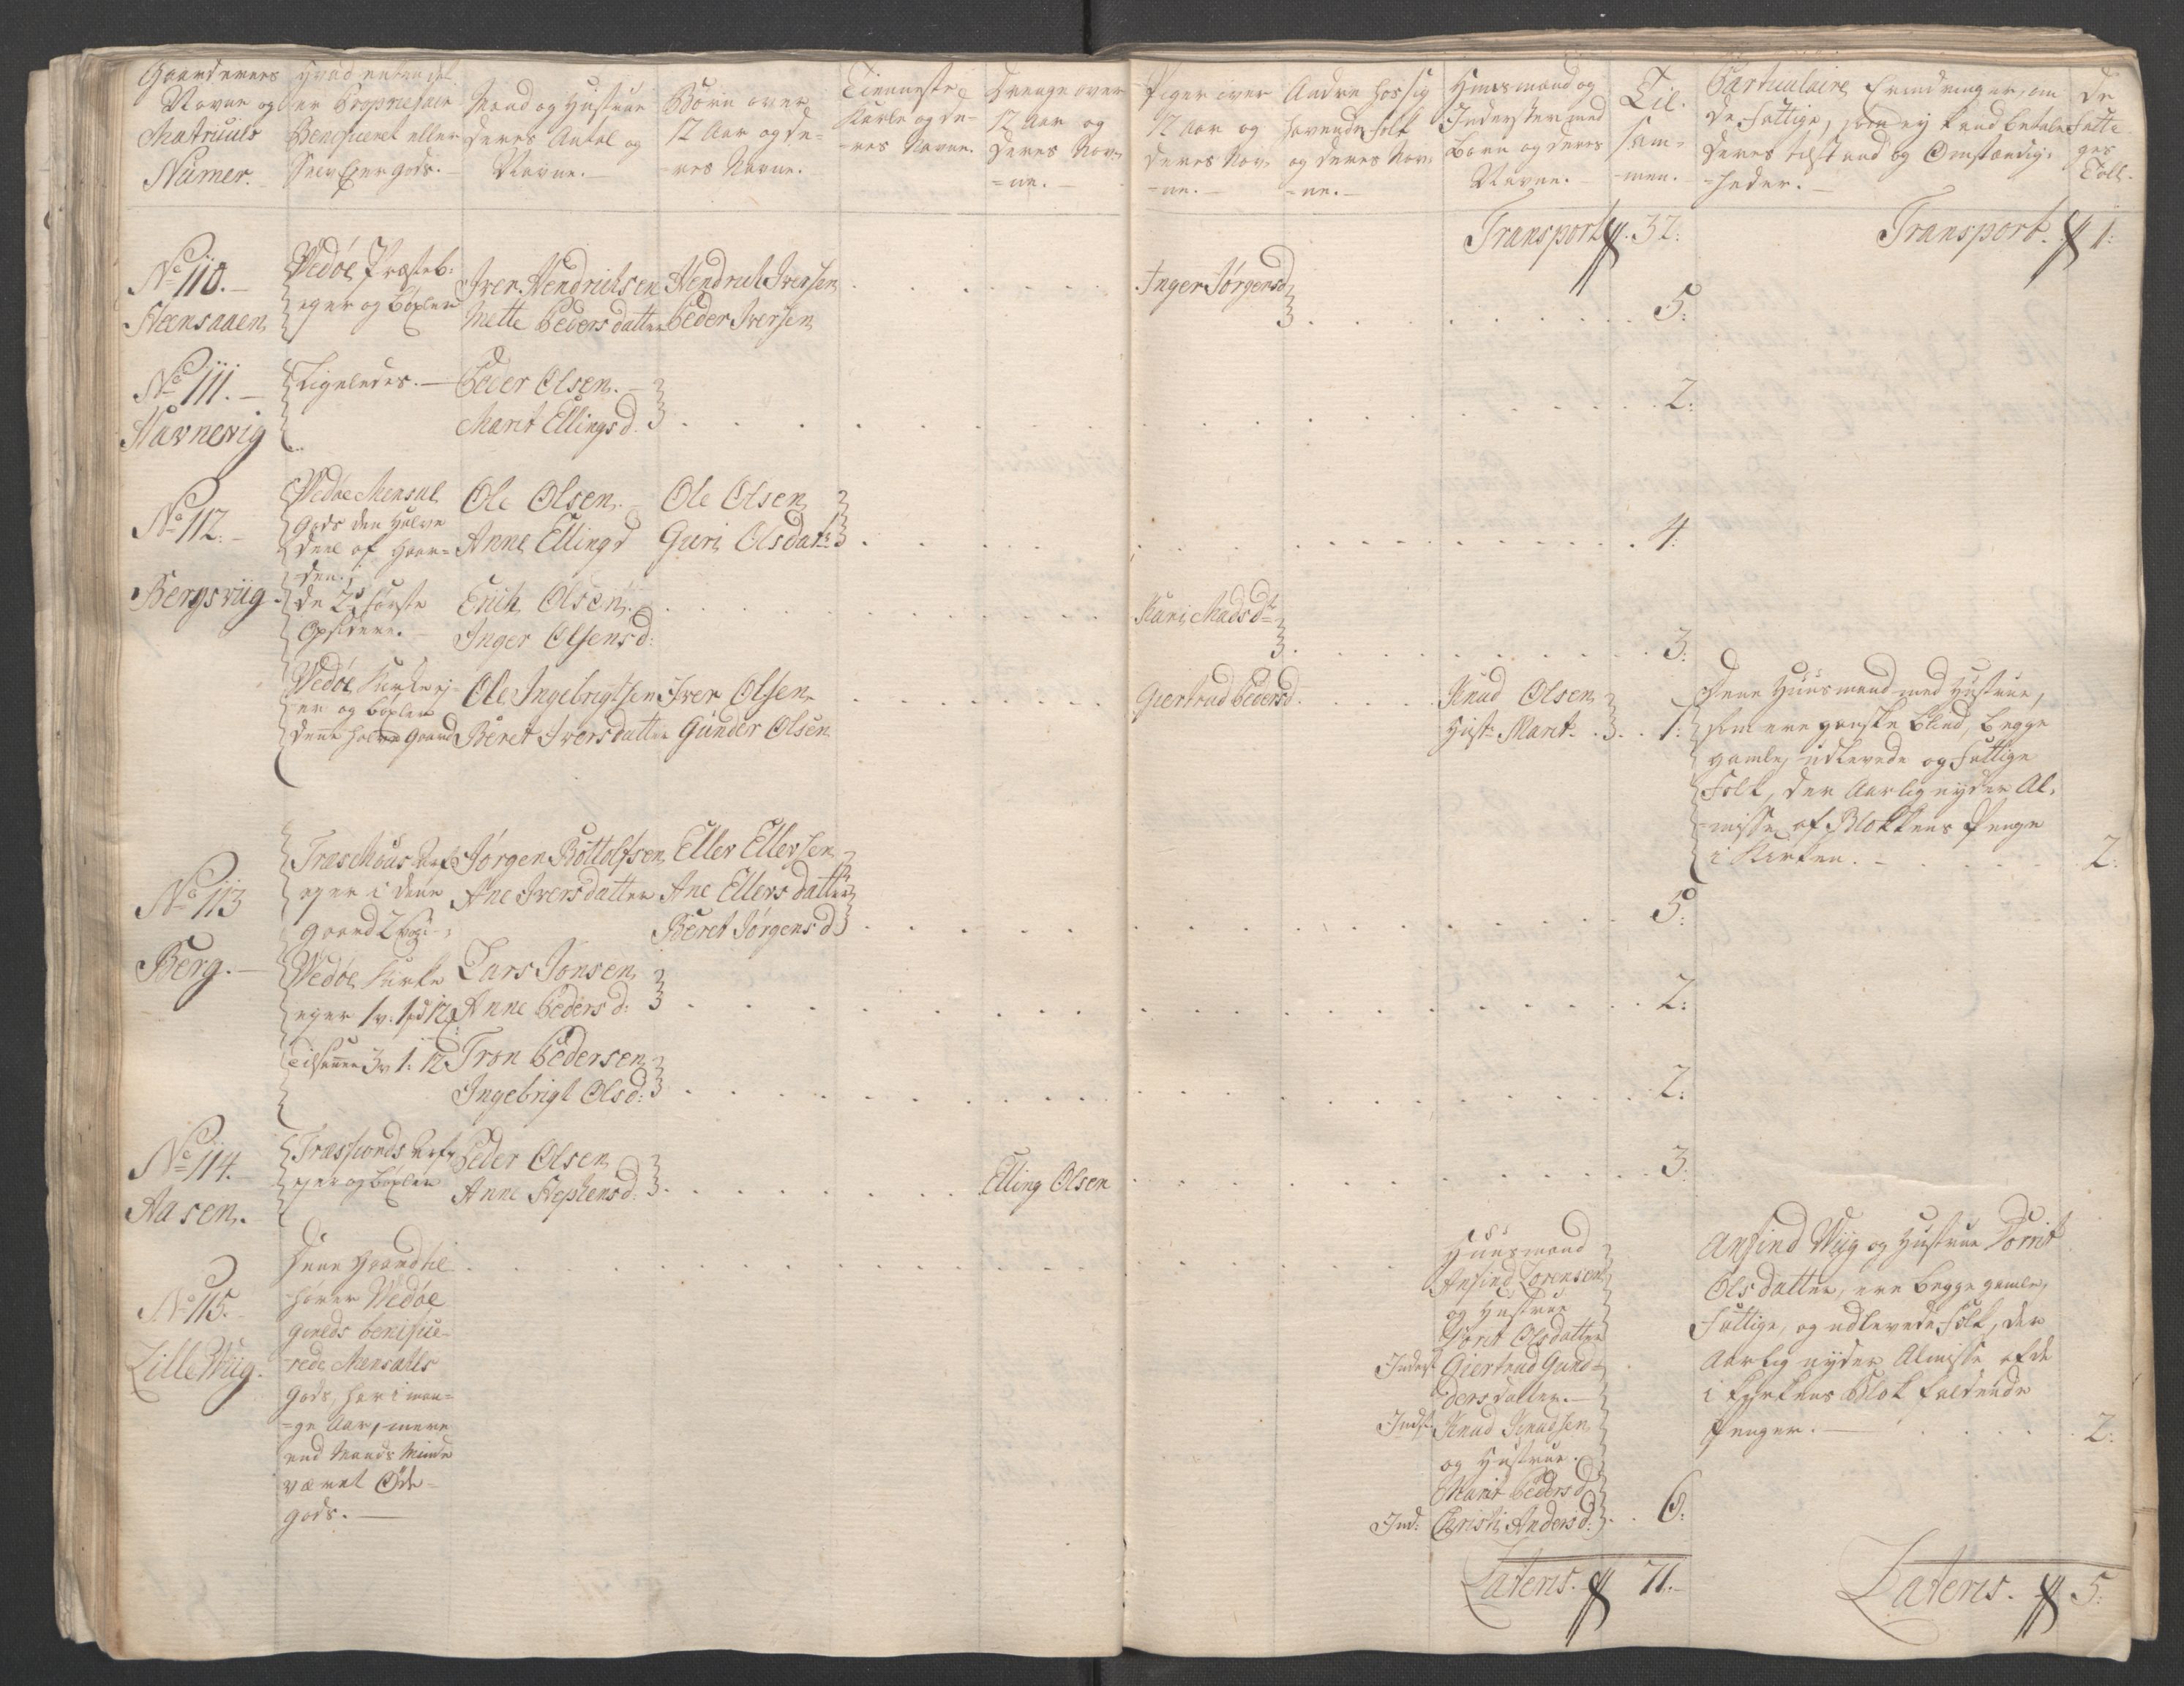 Gaardernes
Navne og
Matriculs
Numer.
hvad enten det
er Proprietair
Beneficeret eller
gods.
Mand og Hustrue
deres Antal og
Navne.
Børn over
12 Aar og de-
-res Navne.
Tienneste
Karle og de-
-res Navne.
Drenge over
12 Aar og
deres Nav-
=ne.
Piger over
12 Aar og
deres Nav-
=ne.
Andre hos sig
havende Folk
og deres Nav-
=ne.
Huusmænd og
Inderster med
Børn og deres
Navne.
Til-
sam-
-men.
Particulaire Erindringer, om
de Fattige, som ey kand betale
deres tilstand og Omstændig-
=heder.
De
Fatti-
ges
Tall.
Transport 32:
Transport 1:
No 110.
Steensaaen
Vedøe Præsteb:
eger og böxler
Iver Hendrichsen
Mette Peders datter
Hendrich Iversen
Peder Iversen
Inger Jörgensd
5:
No 111.
Havnevig
Ligeledes.
Peder Olsen.
Marit Ellings d.
2:
No 112.
Bergsviig
Vedøe Mensal
Gods den halve
deel af Gaar-
den.
de 2de første
Opsiddere.
Ole Olsen
Anne Ellingd
Ole Olsen
Guri Olsdatr
4:
Erich Olsen
Inger Olsens d:
Kari Madsdr
3:
Vedøe Kirke ej-
er og böxler
denne halve Gaard
Ole Ingebrigtsen
Beret Iversdatter
Iver Olsen
Gunder Olsen
Giertrud Pedersd
Knud Olsen
Hustr Marit
1:
Denne Huusmand med Hustrue,
som ere ganske blind, begge
gamle, udlevede og fattige
Folk, der Aarlig nyder Al-
-misse af Blokkens Penge
i Kirken.
2:
No 113
Berg.
eger i denne
Gaard 2
Jörgen Bottolfsen
Ane Iversdatter
Eller Ellersen
Ane Ellers datter
Beret Jörgens d
5:
Vedøe Kirke
eger 1 v: 1 pd 12
Lars Jonsen
Anne Peders d:
2:
Tilsammen 3 v 1: 12
Tron Pedersen
Ingebrigt Olsd:
2:
No 114.
Aasen.
eger og böxler
Peder Olsen
Anne Stephens d:
Elling Olsen
3:
No 115.
Lille Wiig.
Denne Gaard til
hører Vedøe
Gields benificе-
-rede Mensals
Gods, har i man-
=ge Aar, mere
end Mands Minde
været Øde-
gods.
Huusmand
Anfind Lorensen
og Hustrue
Dorit Olsdatter
Inderst Giertrud Gund-
ders datter.
Indst: Knud Knudsen
og Hustrue.
Marit Peders d
Ind: Christi Anders d:
6:
Anfind Wiig og Hustrue Dorrit
Olsdatter, ere begge gamle,
Fattige, og udlevede Folk, der
Aarlig nyder Almisse af de
i Kirkens Blok faldende
Penger.
2:
Lateris. 71.
Lateris. 5: